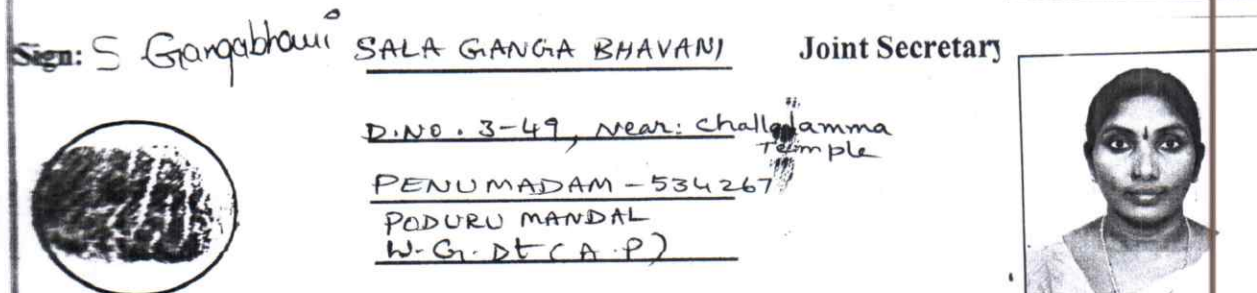 Sign: S Gangabhavani SALA GANGA BHAVANI Joint Secretary
D.NO. 3-49, Near: Challalamma
Temple
PENUMADAM - 534267
PODURU MANDAL
W.G. Dt (A.P)